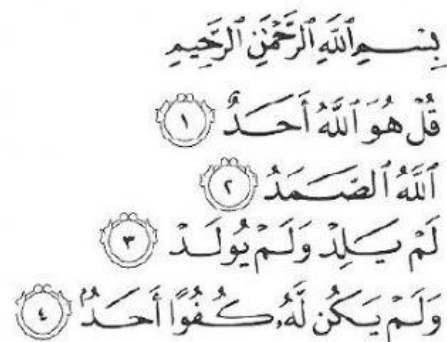 بِسْمِ ٱللَّهِ ٱلرَّحْمَٰنِ ٱلرَّحِيمِ
قُلْ هُوَ ٱللَّهُ أَحَدٌ ١
ٱللَّهُ ٱلصَّمَدُ ٢
لَمْ يَلِدْ وَلَمْ يُولَدْ ٣
وَلَمْ يَكُن لَّهُۥ كُفُوًا أَحَدٌۢ ٤